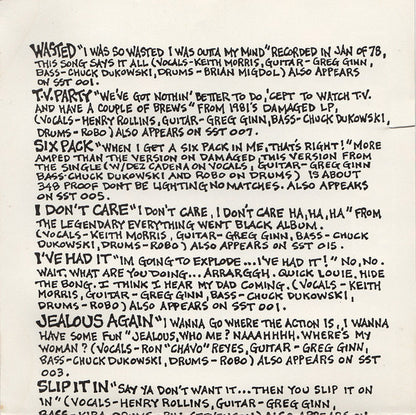 WASTED "I WAS SO WASTED I WAS OUTTA MY MIND" RECORDED IN JAN OF 78,
THIS SONG SAYS IT ALL (VOCALS-KEITH MORRIS, GUITAR-GREG GINN,
BASS-CHUCK DUKOWSKI, DRUMS-BRIAN MIGDOL) ALSO APPEARS
ON SST 001.
T.V. PARTY "WE'VE GOT NOTHIN' BETTER TO DO, 'CEPT TO WATCH T.V.
AND HAVE A COUPLE OF BREWS" FROM 1981'S DAMAGED LP,
(VOCALS-HENRY ROLLINS, GUITAR-GREG GINN, BASS-CHUCK DUKOWSKI,
DRUMS-ROBO) ALSO APPEARS ON SST 007.
SIX PACK "WHEN I GET A SIX PACK IN ME, THAT'S RIGHT!" MORE
AMPED THAN THE VERSION ON DAMAGED, THIS VERSION FROM
THE SINGLE (W/DEZ CADENA ON VOCALS, GUITAR-GREG GINN
BASS-CHUCK DUKOWSKI AND ROBO ON DRUMS) IS ABOUT
348 PROOF DONT BE LIGHTING NO MATCHES. ALSO APPEARS
ON SST 005.
I DON'T CARE "I DON'T CARE, I DON'T CARE HA, HA, HA" FROM
THE LEGENDARY EVERYTHING WENT BLACK ALBUM.
(VOCALS-KEITH MORRIS, GUITAR-GREG GINN, BASS-CHUCK
DUKOWSKI, DRUMS-ROBO) ALSO APPEARS ON SST 015.
I'VE HAD IT "IM GOING TO EXPLODE...I'VE HAD IT!" NO, NO.
WAIT. WHAT ARE YOU DOING... ARRARGGH. QUICK LOUIE, HIDE
THE BONG. I THINK I HEAR MY DAD COMING. (VOCALS-KEITH
MORRIS, GUITAR-GREG GINN, BASS-CHUCK DUKOWSKI,
DRUMS-ROBO) ALSO APPEARS ON SST 001.
JEALOUS AGAIN "I WANNA GO WHERE THE ACTION IS, I WANNA
HAVE SOME FUN" JEALOUS, WHO ME? NAAAHHHH. WHERE'S MY
WOMAN? (VOCALS-RON "CHAVO" REYES, GUITAR-GREG GINN,
BASS-CHUCK DUKOWSKI, DRUMS-ROBO) ALSO APPEARS ON SST
003.
SLIP IT IN "SAY YA DON'T WANT IT...THEN YOU SLIP IT ON
IN" (VOCALS-HENRY ROLLINS, GUITAR-GREG GINN,